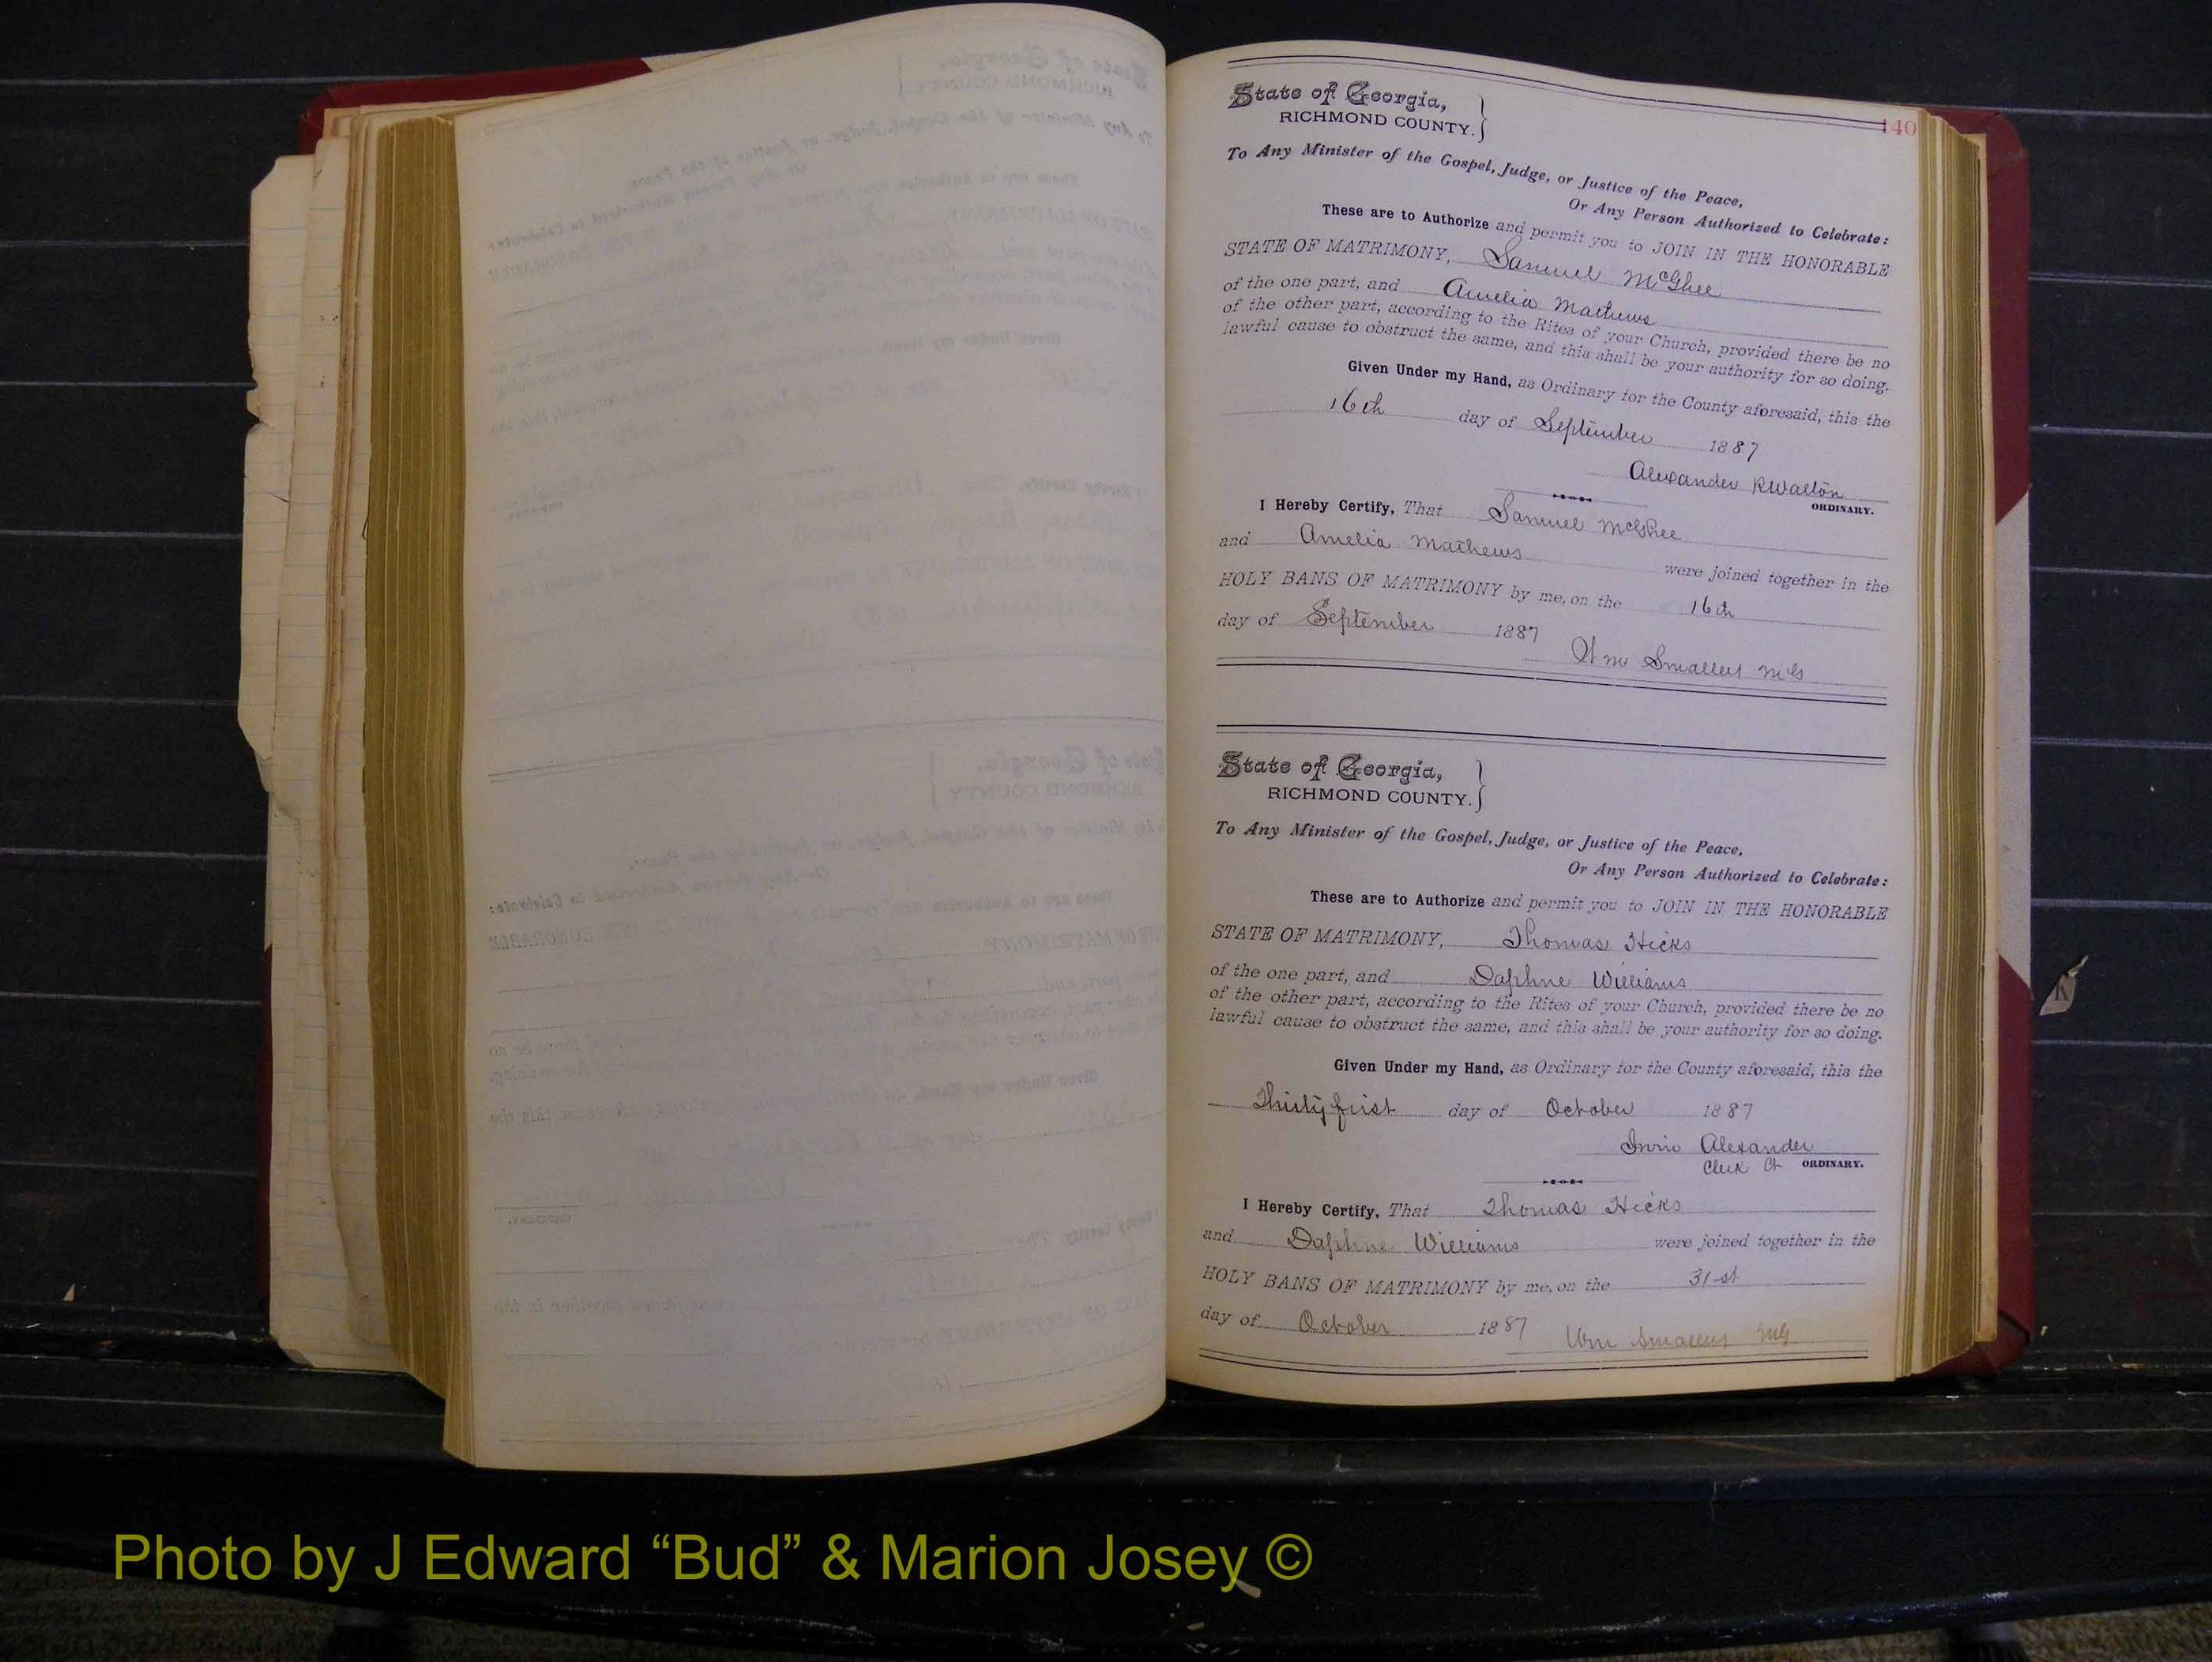 140
State of Georgia,
RICHMOND COUNTY.
To Any Minister of the Gospel, Judge, or Justice of the Peace,
Or Any Person Authorized to Celebrate:
These are to Authorize and permit you to JOIN IN THE HONORABLE
STATE OF MATRIMONY, Samuel McGhee
of the one part, and Amelia Mathews
of the other part, according to the Rites of your Church, provided there be no
lawful cause to obstruct the same, and this shall be your authority for so doing.
Given Under my Hand, as Ordinary for the County aforesaid, this the
16th day of September 1887
Alexander R Walton
ORDINARY.
I Hereby Certify, That Samuel McGhee
and Amelia Mathews were joined together in the
HOLY BANS OF MATRIMONY by me, on the 16th
day of September 1887
Wm Smalley MG
State of Georgia,
RICHMOND COUNTY.
To Any Minister of the Gospel, Judge, or Justice of the Peace,
Or Any Person Authorized to Celebrate:
These are to Authorize and permit you to JOIN IN THE HONORABLE
STATE OF MATRIMONY, Thomas Hicks
of the one part, and Daphne Williams
of the other part, according to the Rites of your Church, provided there be no
lawful cause to obstruct the same, and this shall be your authority for so doing.
Given Under my Hand, as Ordinary for the County aforesaid, this the
Thirty first day of October 1887
Irvin Alexander
Clerk Ct ORDINARY.
I Hereby Certify, That Thomas Hicks
and Daphne Williams were joined together in the
HOLY BANS OF MATRIMONY by me, on the 31st
day of October 1887
Wm Smalley MG
Photo by J Edward “Bud” & Marion Josey ©